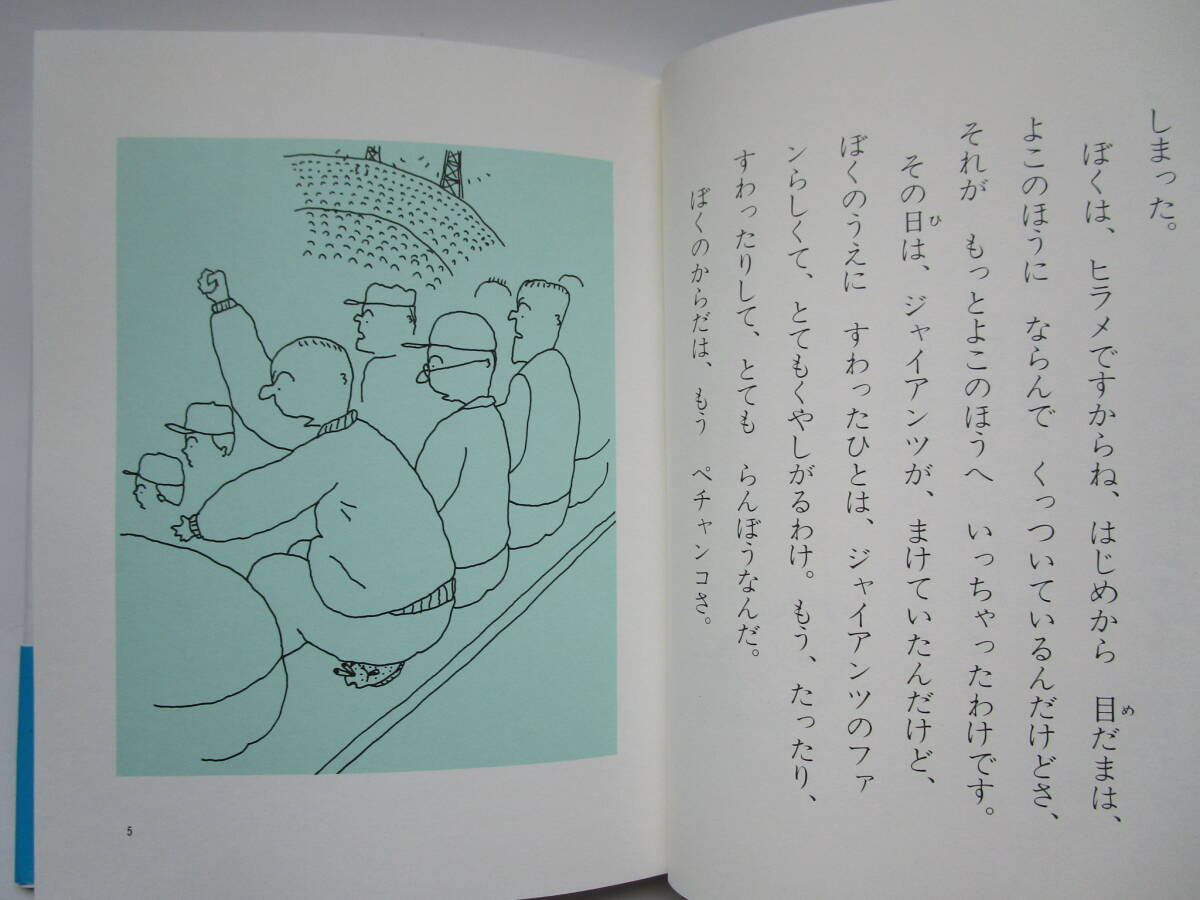 しまった。
ぼくは、ヒラメですからね、はじめから　目だまは、
め
よこのほうに　ならんで　くっついているんだけどさ、
それが　もっとよこのほうへ　いっちゃったわけです。
その日は、ジャイアンツが、まけていたんだけど、
ひ
ぼくのうえに　すわったひとは、ジャイアンツのファ
ンらしくて、とてもくやしがるわけ。もう、たったり、
すわったりして、とても　らんぼうなんだ。
ぼくのからだは、もう　ペチャンコさ。
5